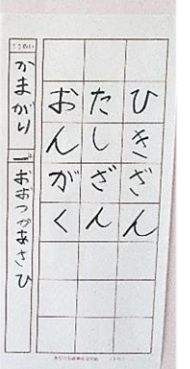 ひきざん
たしざん
おんがく
かまがり 一 おおつかあさひ